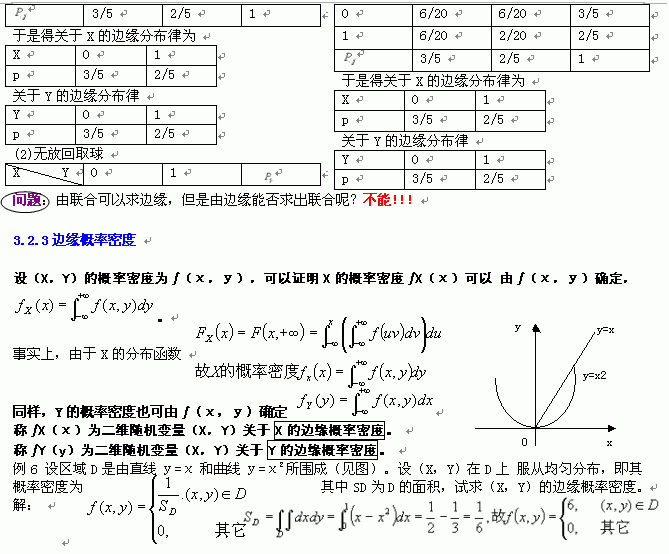 Pj 3/5 2/5 1
于是得关于 X 的边缘分布律为
X 0 1
p 3/5 2/5
关于 Y 的边缘分布律
Y 0 1
p 3/5 2/5
(2)无放回取球
X Y 0 1 Pi
0 6/20 6/20 3/5
1 6/20 2/20 2/5
Pj 3/5 2/5 1
于是得关于 X 的边缘分布律为
X 0 1
p 3/5 2/5
关于 Y 的边缘分布律
Y 0 1
p 3/5 2/5
问题：由联合可以求边缘，但是由边缘能否求出联合呢？不能!!!
3.2.3边缘概率密度
设（X，Y）的概率密度为ƒ（x，y），可以证明 X 的概率密度ƒX（x）可以 由ƒ（x，y）确定，
f_X(x)=∫_{-∞}^{+∞} f(x,y)dy 。
事实上，由于 X 的分布函数
F_X(x)=F(x,+∞)=∫_{-∞}^{x}(∫_{-∞}^{+∞} f(uv)dv)du
故X的概率密度f_x(x)=∫_{-∞}^{+∞} f(x,y)dy
同样，Y 的概率密度也可由ƒ（x，y）确定
f_Y(y)=∫_{-∞}^{+∞} f(x,y)dx
称ƒX（x）为二维随机变量（X，Y）关于 X 的边缘概率密度。
称ƒY（y）为二维随机变量（X，Y）关于 Y 的边缘概率密度。
y
y=x
y=x2
0
x
例 6 设区域 D 是由直线 y=x 和曲线 y=x²所围成（见图）。设（X，Y）在 D 上 服从均匀分布，即其
概率密度为 其中 SD 为 D 的面积，试求（X，Y）的边缘概率密度。
f(x,y)={1/S_D .(x,y)∈D
0, 其它
解：
S_D=∫∫_D dxdy=∫_0^1(x-x²)dx=1/2-1/3=1/6,故f(x,y)={6, (x,y)∈D
0, 其它